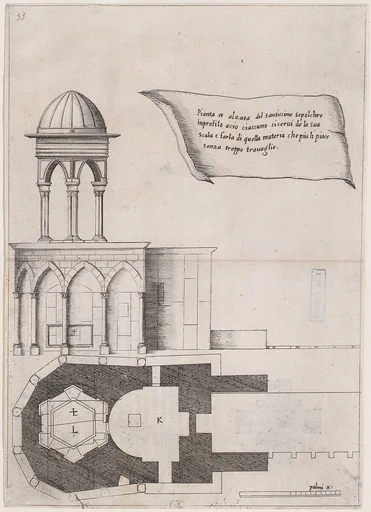 33
Pianta et alzata del santissimo sepolchro
inprofilo acio ciascuno si servi de la sua
scala e farla di quella materia che piu li piace
senza troppo travaglio.
Ł
L
K
palmi x.